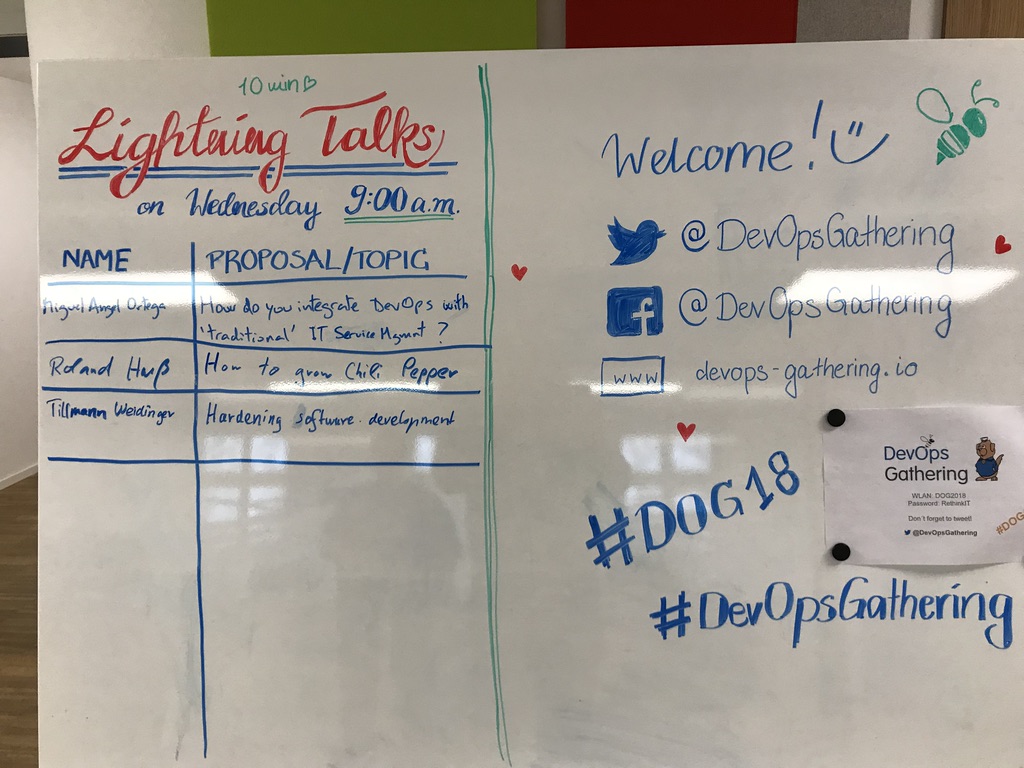 10 min
Lightning Talks
on Wednesday 9:00 a.m.
NAME PROPOSAL/TOPIC
Miguel Angel Ortega How do you integrate DevOps with
'traditional' IT Service Mgmnt ?
Roland Huß How to grow Chili Pepper
Tillmann Weidinger Hardening software development
Welcome!
@DevOpsGathering
f @DevOpsGathering
www devops-gathering.io
#DOG18
#DevOpsGathering
DevOps
Gathering
WLAN: DOG2018
Password: RethinkIT
Don't forget to tweet!
@DevOpsGathering
#DOG